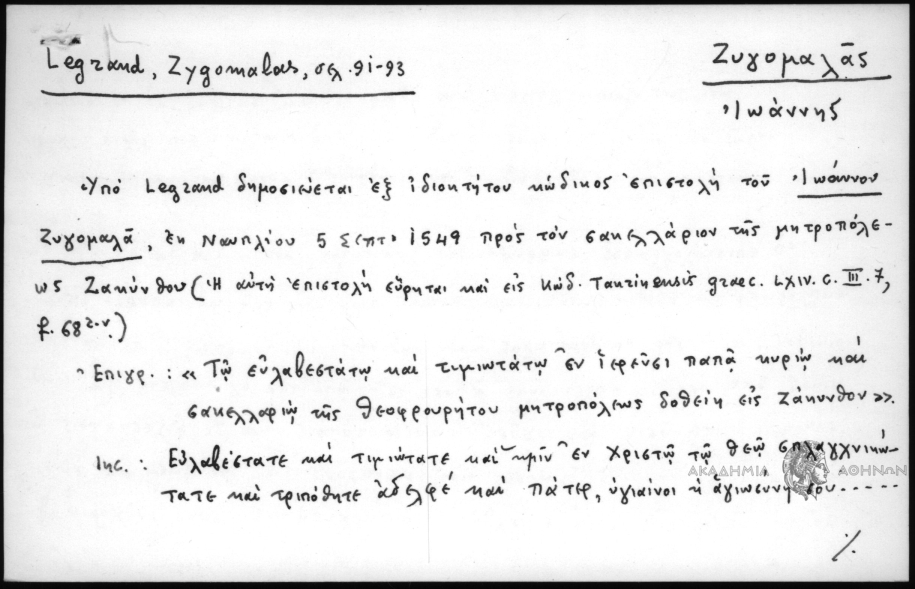 Legrand, Zygomalas, σελ. 91-93
Ζυγομαλᾶς
Ἰωάννης
Ὑπὸ Legrand δημοσιεύεται ἐξ ἰδιοκτήτου κώδικος ἐπιστολὴ τοῦ Ἰωάννου
Ζυγομαλᾶ, ἐκ Ναυπλίου 5 Σεπτ. 1549 πρὸς τὸν σακελλάριον τῆς μητροπόλε-
ως Ζακύνθου (Ἡ αὐτὴ ἐπιστολὴ εὕρηται καὶ εἰς κώδ. Taurinensis graec. LXIV. C. III. 7,
f. 68 r-v.)
Ἐπιγρ.: «Τῷ εὐλαβεστάτῳ καὶ τιμιωτάτῳ ἐν ἱερεῦσι παπᾷ κυρίῳ καὶ
σακελλαρίῳ τῆς θεοφρουρήτου μητροπόλεως δοθείη εἰς Ζάκυνθον».
Inc.: Εὐλαβέστατε καὶ τιμιώτατε καὶ ἡμῖν ἐν Χριστῷ τῷ θεῷ σπλαγχνικώ-
τατε καὶ τριπόθητε ἀδελφέ καὶ πάτερ, ὑγιαίνοι ἡ ἁγιωσύνη σου......
ΑΚΑΔΗΜΙΑ ΑΘΗΝΩΝ
./.